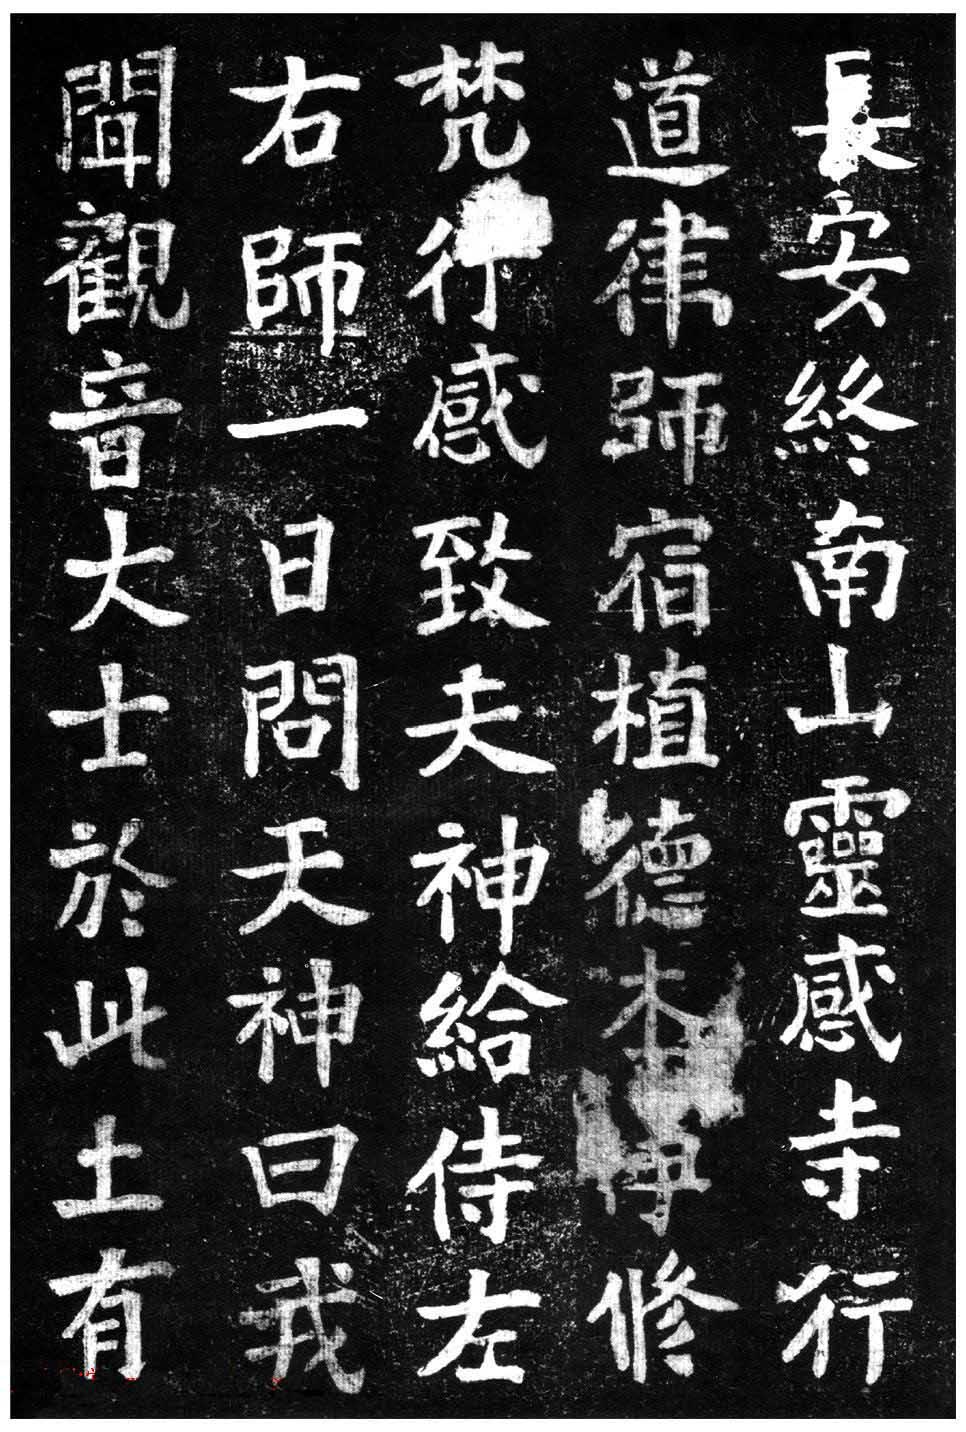 長安終南山靈感寺行
道律師宿植德本淨修
梵行感致天神給侍左
右師一日問天神曰我
聞觀音大士於此土有